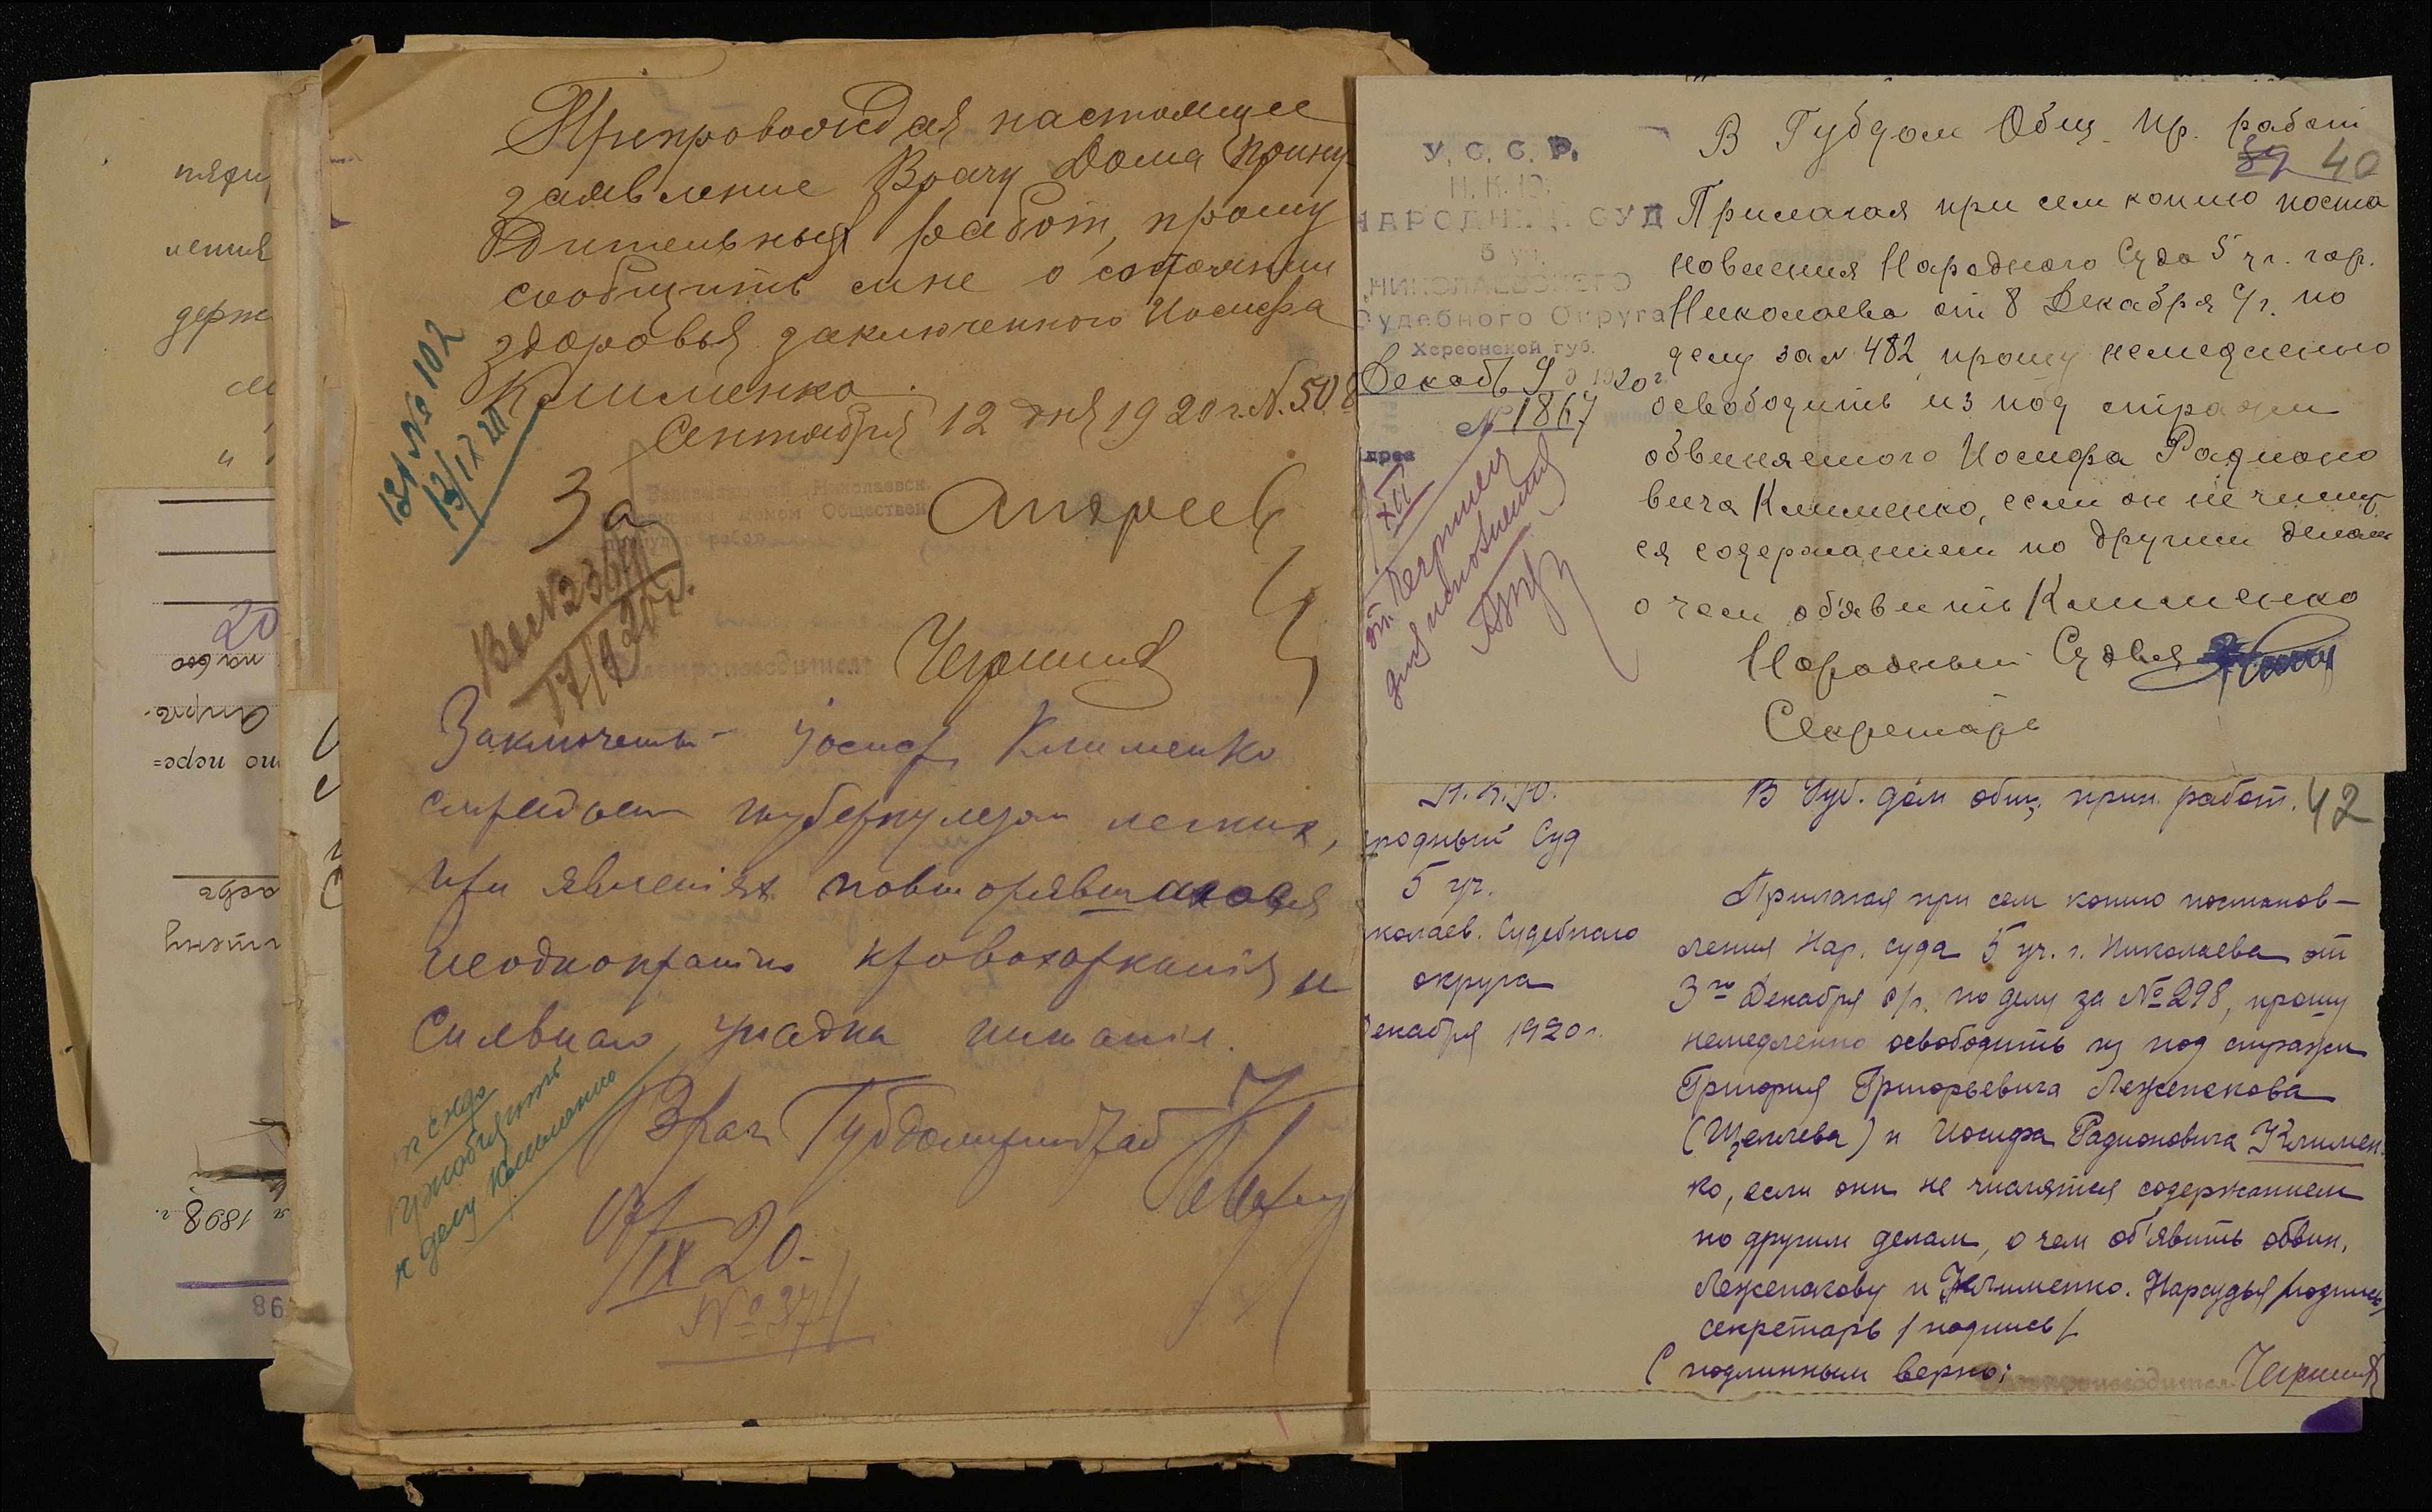 Препровождая настоящее
заявление Врачу Дома Прину
дительных работ, прошу
сообщить мне о состоянии
здоровья заключенного Иосифа
Клименко.
Сентября 12 дня 1920 г. N. 508
Вх № 102
13/IX 20
За
Заведывающий Николаевск.
домом Обществен
работ
Вх N 2364
17/9 20 г.
Делопроизводитель
Заключен. Іосиф Клименко
страдает туберкулезом легких,
при явленіях повторявшагося
неоднократно кровохарканія и
Сильнаго упадка питанія.
Врач Губдомпринудраб
17/IX 20.
№ 374
приобщить
к делу Клименко
У. С. С. Р.
Н. К. Ю.
НАРОДНЫЙ СУД
5 уч.
НИКОЛАЕВСКОГО
Судебного Округа
Херсонской губ.
Декабь 9 д 1920 г.
№ 1867
XII
для исполнения
В Губдом Общ. пр. работ
39 40
Прилагая при сем копию поста
новления Народного Суда 5 уч. гор.
Николаева от 8 Декабря с/г. по
делу за № 482, прошу немедленно
освободить из под стражи
обвиняемого Иосифа Радионо
вича Клименко, если он не числит
ся содержанием по другим делам
о чем об'явить Клименко
Народный Судья
Секретарь
Н.К.Ю.
родный Суд
5 уч.
колаев. Судебного
округа
декабря 1920 г.
В Губ. дом общ. прин. работ. 42
Прилагая при сем копию постанов-
ления Нар. суда 5 уч. г. Николаева от
3го Декабря с/г. по делу за № 298, прошу
немедленно освободить из под стражи
Григория Григорьевича Лежепекова
(Щеглева) и Иосифа Радионовича Климен
ко, если они не числятся содержанием
по другим делам, о чем об'явить обвин.
Лежепекову и Клименко. Нарсудья /подпись/
секретарь /подпись/
С подлинным верно:
Делопроизводитель
ления
держ
20
по пере=
1898 г.
98